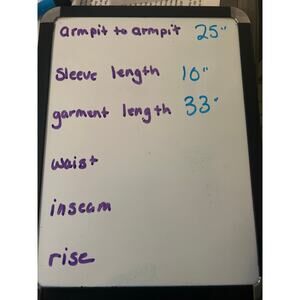 armpit to armpit 25"
Sleeve length 10"
garment length 33"
waist
inseam
rise